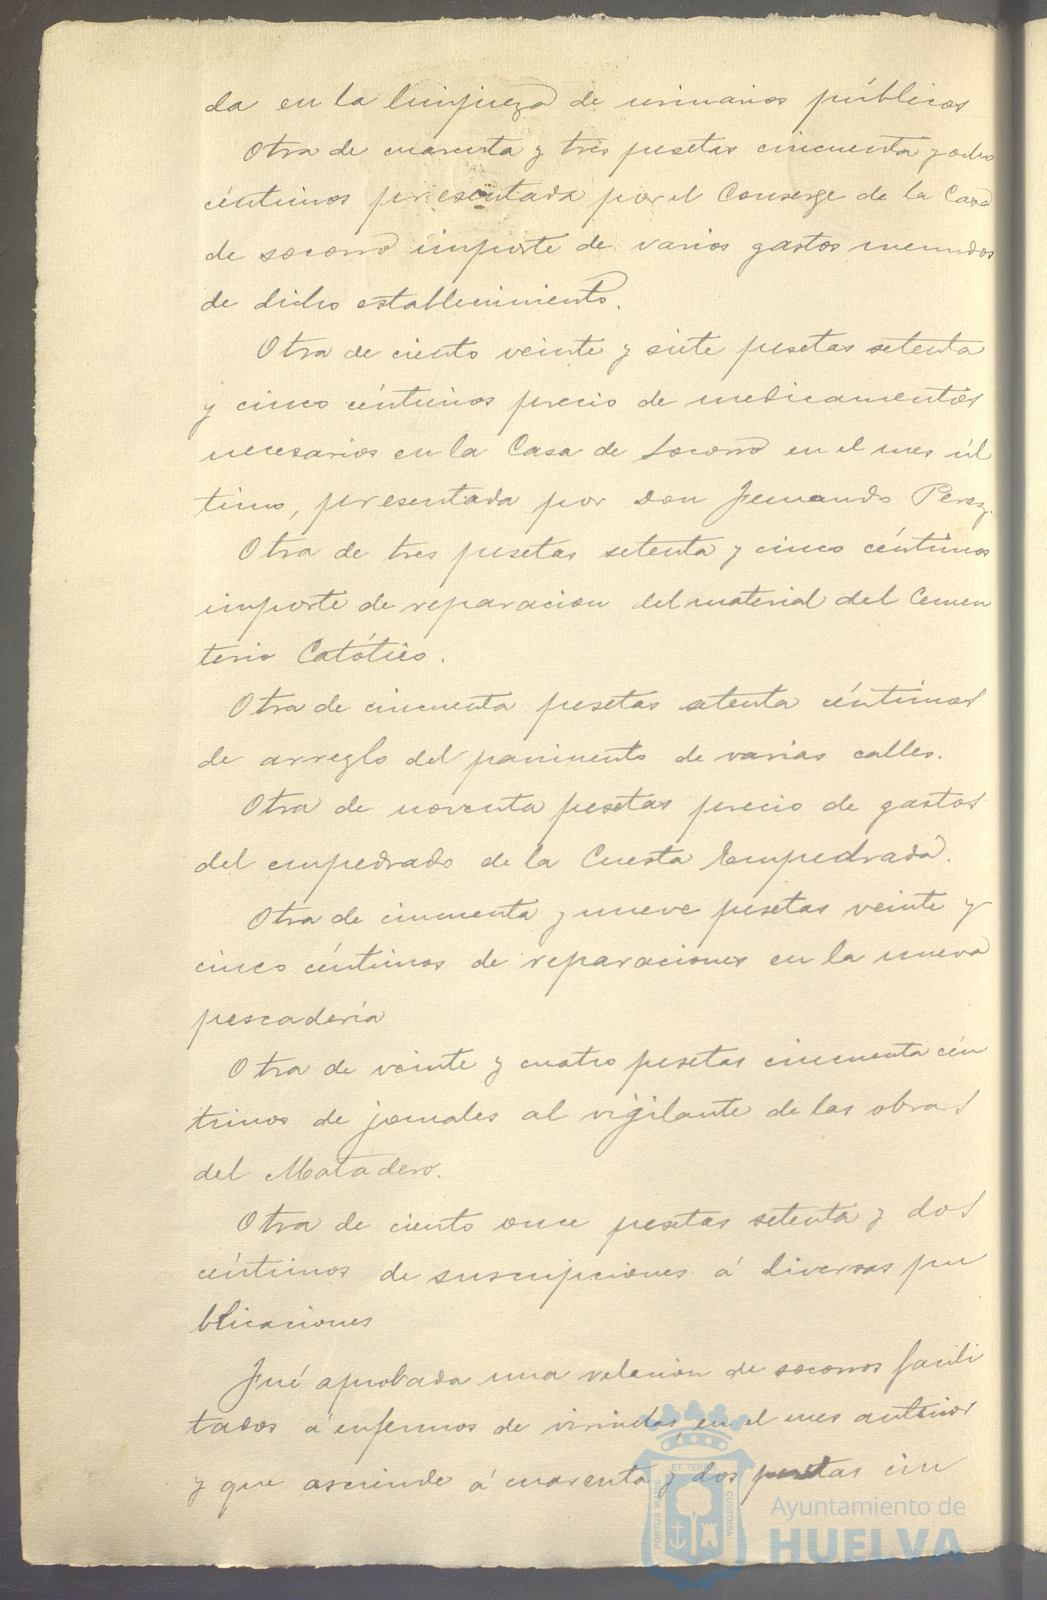 da en la limpieza de urinarios públicos
Otra de cuarenta y tres pesetas cincuenta y ocho
céntimos presentada por el Conserge de la Casa
de socorro importe de varios gastos menudos
de dicho establecimiento.
Otra de ciento veinte y siete pesetas setenta
y cinco céntimos precio de medicamentos
necesarios en la Casa de Socorro en el mes úl
timo, presentada por Don Fernando Perez.
Otra de tres pesetas setenta y cinco céntimos
importe de reparacion del material del Cemen
terio Católico.
Otra de cincuenta pesetas setenta céntimos
de arreglo del pavimento de varias calles.
Otra de noventa pesetas precio de gastos
del empedrado de la Cuesta Empedrada.
Otra de cincuenta y nueve pesetas veinte y
cinco céntimos de reparaciones en la nueva
pescaderia
Otra de veinte y cuatro pesetas cincuenta cén
timos de jornales al vigilante de las obras
del Matadero.
Otra de ciento once pesetas setenta y dos
céntimos de suscripciones á diversas pu
blicaciones
Fué aprobada una relacion de socorros facili
tados á enfermos de viruelas, en el mes anterior
y que asciende á cuarenta y dos pesetas cin
PORTUS MARIS ET TERRAE CUSTODIA
Ayuntamiento de
HUELVA